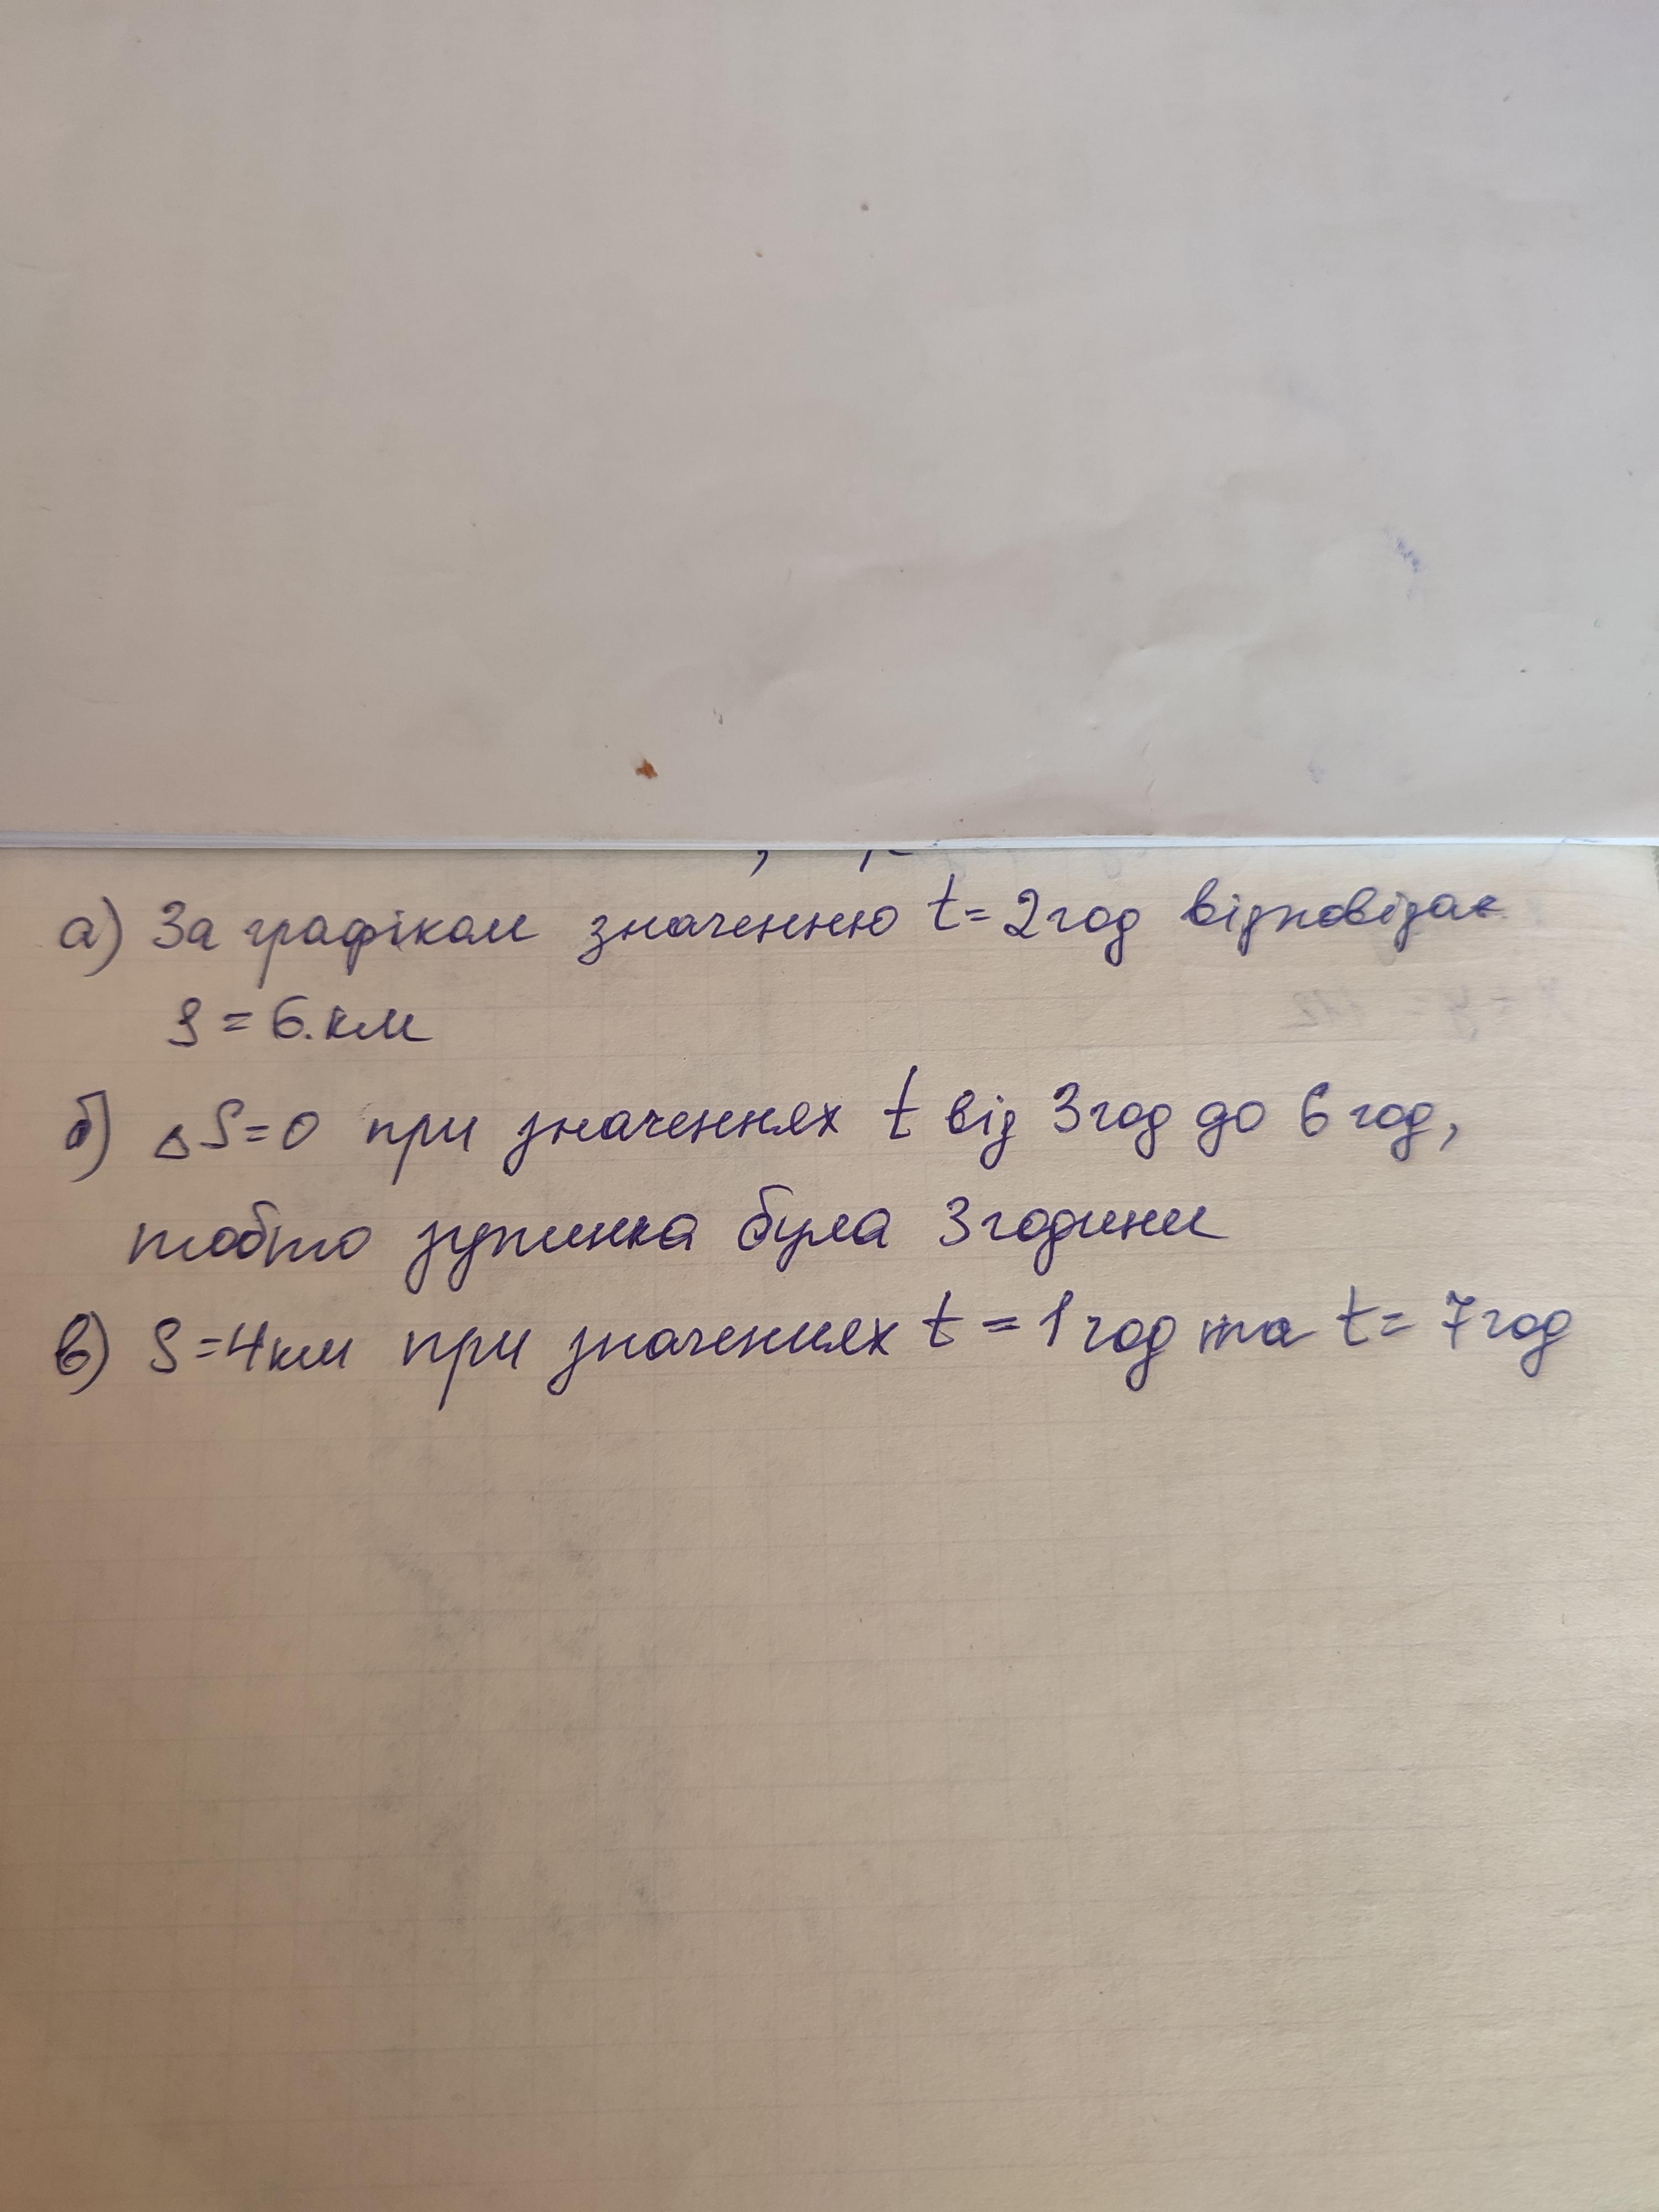 а) За графіком значенню t = 2 год відповідає
S = 6. км
б) ΔS = 0 при значеннях t від 3 год до 6 год,
тобто зупинка була 3 години
в) S = 4 км при значеннях t = 1 год та t = 7 год